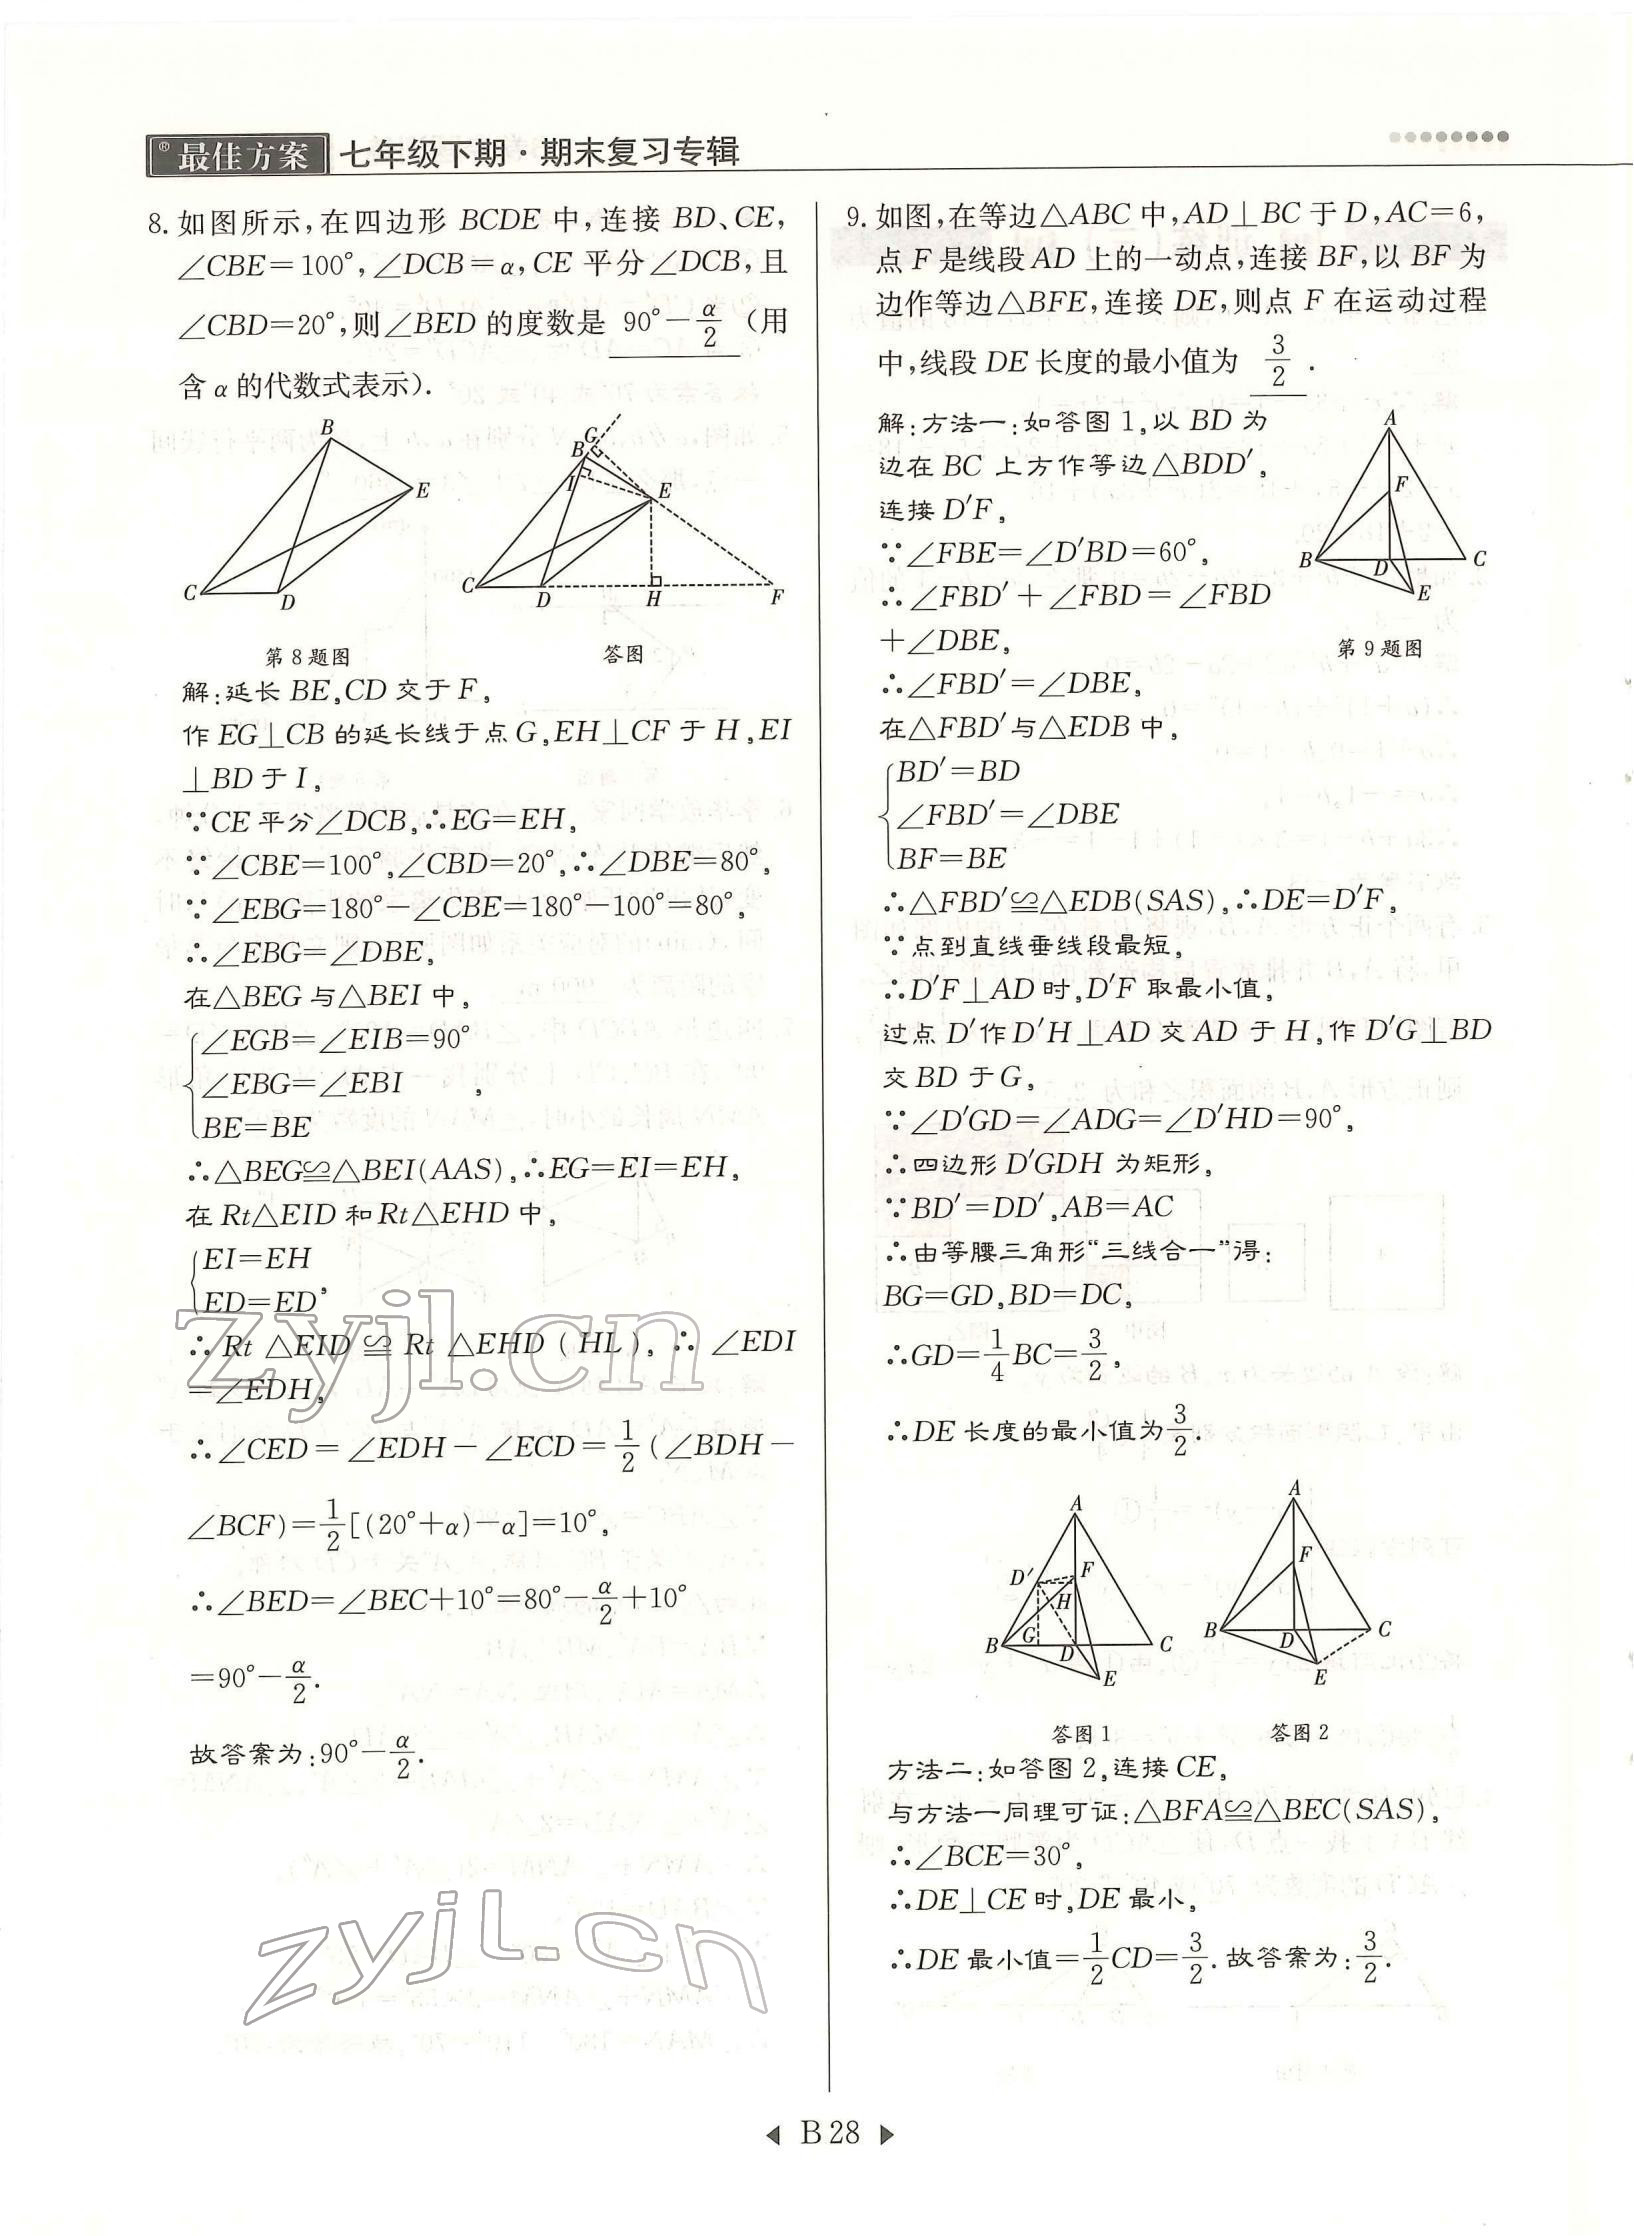 ®最佳方案 七年级下期·期末复习专辑
8. 如图所示,在四边形 BCDE 中,连接 BD、CE,
∠CBE=100°,∠DCB=α,CE 平分∠DCB,且
∠CBD=20°,则∠BED 的度数是 90°-α/2 (用
含 α 的代数式表示).
B
E
C
D
第 8 题图
G
B
I
E
C
D
H
F
答图
解:延长 BE,CD 交于 F,
作 EG⊥CB 的延长线于点 G,EH⊥CF 于 H,EI
⊥BD 于 I,
∵CE 平分∠DCB,∴EG=EH,
∵∠CBE=100°,∠CBD=20°,∴∠DBE=80°,
∵∠EBG=180°-∠CBE=180°-100°=80°,
∴∠EBG=∠DBE,
在△BEG 与△BEI 中,
∠EGB=∠EIB=90°
∠EBG=∠EBI ,
BE=BE
∴△BEG≌△BEI(AAS),∴EG=EI=EH,
在 Rt△EID 和 Rt△EHD 中,
EI=EH
ED=ED,
∴Rt △EID ≌ Rt △EHD (HL), ∴ ∠EDI
=∠EDH,
∴∠CED=∠EDH-∠ECD=1/2(∠BDH-
∠BCF)=1/2[(20°+α)-α]=10°,
∴∠BED=∠BEC+10°=80°-α/2+10°
=90°-α/2.
故答案为:90°-α/2.
9. 如图,在等边△ABC 中,AD⊥BC 于 D,AC=6,
点 F 是线段 AD 上的一动点,连接 BF,以 BF 为
边作等边△BFE,连接 DE,则点 F 在运动过程
中,线段 DE 长度的最小值为 3/2 .
解:方法一:如答图 1,以 BD 为
边在 BC 上方作等边△BDD′,
连接 D′F,
∵∠FBE=∠D′BD=60°,
∴∠FBD′+∠FBD=∠FBD
+∠DBE,
A
F
B
D
C
E
第 9 题图
∴∠FBD′=∠DBE,
在△FBD′与△EDB 中,
BD′=BD
∠FBD′=∠DBE
BF=BE
∴△FBD′≌△EDB(SAS),∴DE=D′F,
∵点到直线垂线段最短,
∴D′F⊥AD 时,D′F 取最小值,
过点 D′作 D′H⊥AD 交 AD 于 H,作 D′G⊥BD
交 BD 于 G,
∵∠D′GD=∠ADG=∠D′HD=90°,
∴四边形 D′GDH 为矩形,
∵BD′=DD′,AB=AC
∴由等腰三角形“三线合一”得:
BG=GD,BD=DC,
∴GD=1/4BC=3/2,
∴DE 长度的最小值为3/2.
A
D′
F
H
B
G
D
C
E
答图 1
A
F
B
D
C
E
答图 2
方法二:如答图 2,连接 CE,
与方法一同理可证:△BFA≌△BEC(SAS),
∴∠BCE=30°,
∴DE⊥CE 时,DE 最小,
∴DE 最小值=1/2CD=3/2.故答案为:3/2.
zyjl.cn
zyjl.cn
B 28